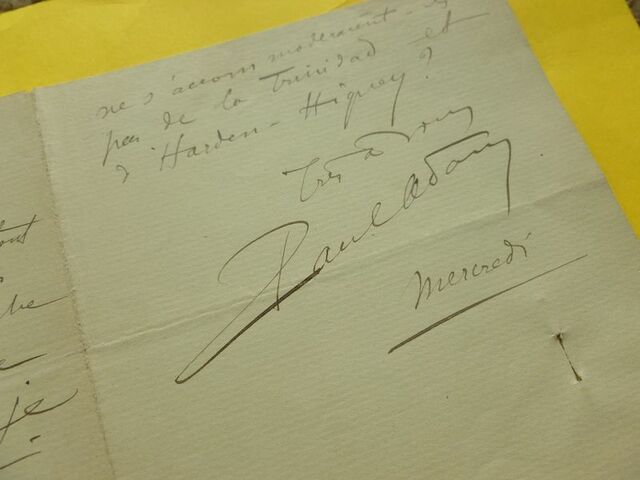 tout
je
ne s'accommoderaient-ils
pas de la Trinidad et
d'Harden-Hiquey?
Très à vous
Paul Adam
Mercredi